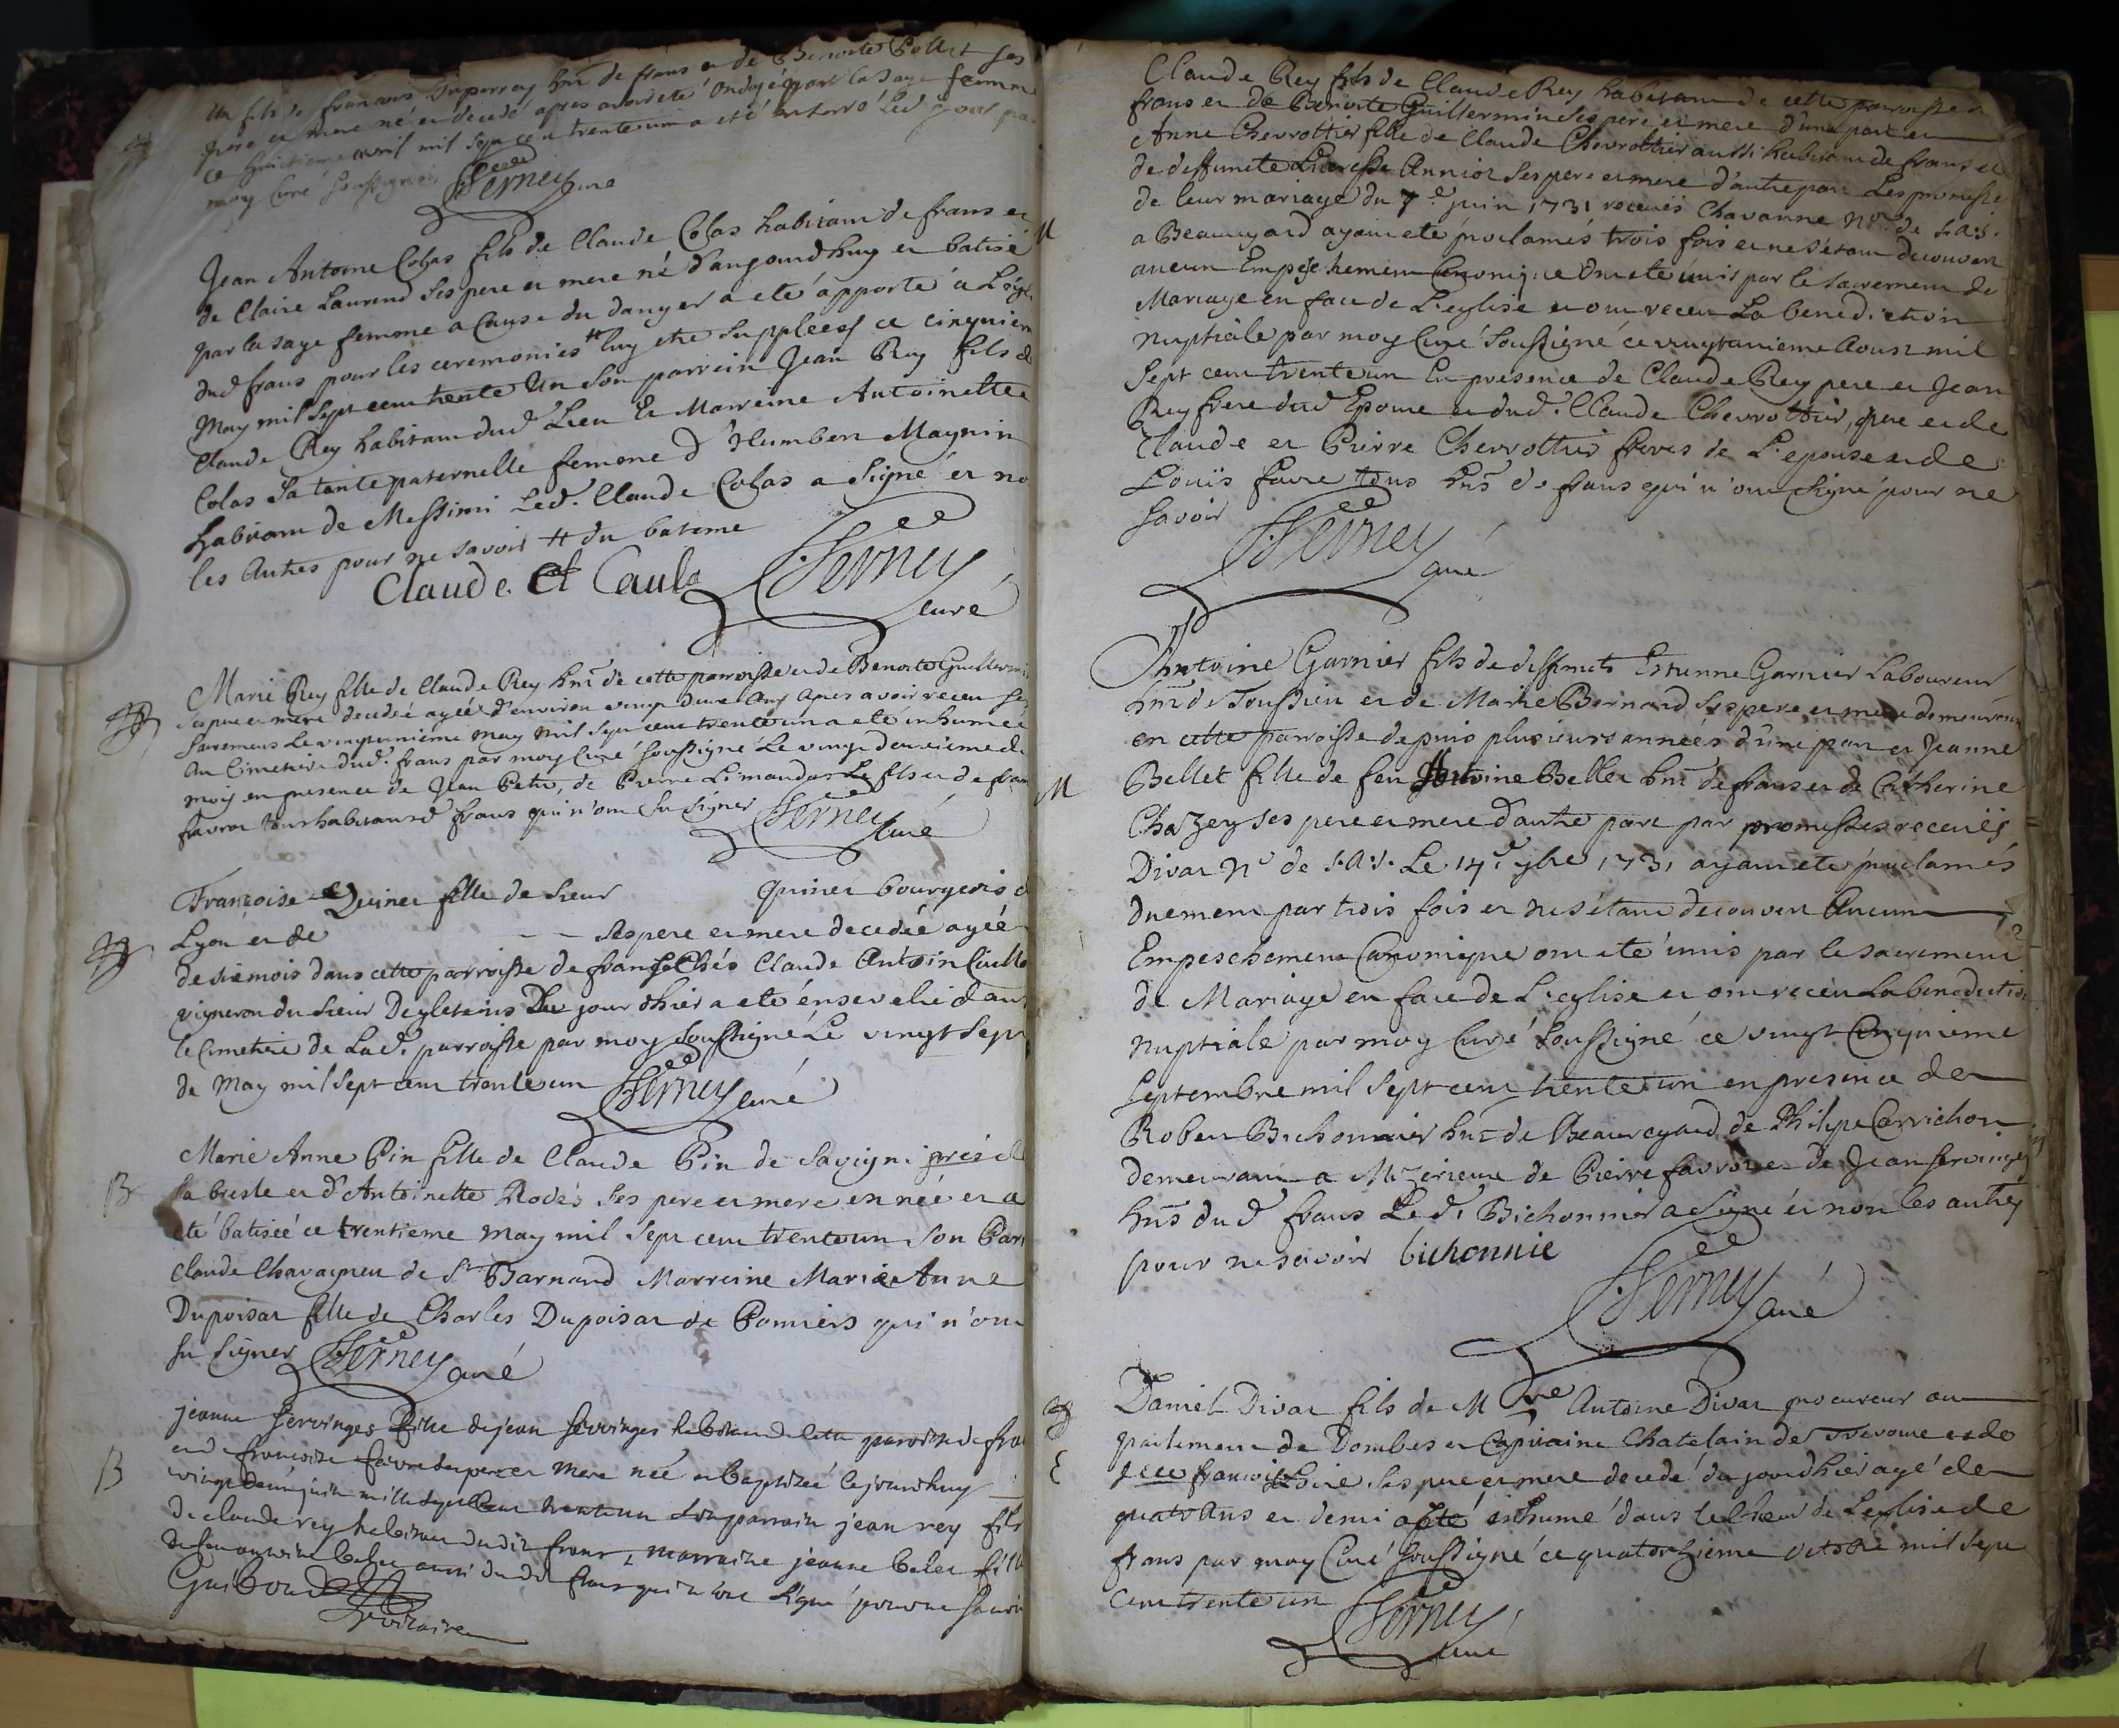 Un fils de francois Duperray hnt de frans et de Benoite Collet ses
pere et mere né et decedé apres avoir eté ondoyé par la sage femme
ce huitieme avril mil sept cent trente un a eté enterré led jour par
moy Curé soussigné Verney curé
Jean Antoine Colas fils de Claude Colas habitant de frans et
de Claire Laurend ses pere et mere né d'aujourdhuy et batisé
par la sage femme a Cause du danger a eté apporté a L'eglise
dud frans pour les ceremonies # luy etre supplées ce cinquieme
May mil sept cent trente Un son parrein Jean Rey fils de
Claude Rey habitant dud. Lieu Et Marreine Antoinette
Colas sa tante paternelle femme d'Humbert Maynin
habitant de Messimi Led. Claude Colas a signé et non
les Autres pour ne savoir # du bateme
Claude Colas Verney
curé
Marie Rey fille de Claude Rey hnt de cette parroisse et de Benoite Guillermin
ses pere et mere decedée agée d'environ vingt deux Ans Apres avoir receu ses
sacremens Le vingtunième may mil sept cent trente un a eté inhumée
Au Cimetiere dud. frans par moy Curé soussigné Le vingt deuxième du
mois en presence de Jean Petit, de Pierre Limandas Le fils et de
favrot tous habitans d frans qui n'ont su signer Verney
curé
Francoise Quinet fille de sieur Quinet bourgeois de
Lyon et de - - ses pere et mere decedée agée
de six mois dans cette parroisse de frans Chés Claude Antoin
vigneron du sieur Desgleteins Du jour dhier a eté ensevelie dans
le Cimetiere de Lad. parroisse par moy soussigné Le vingt sept
de May mil sept cent trente un Verney curé
B
Marie Anne Pin fille de Claude Pin de Savigni près de
la bresle et d'Antoinette Rodés ses pere et mere en née et a
eté batisée ce trentieme May mil sept cent trente un son Par
Claude Chavagneu de St Barnard Marreine Marie Anne
Dupoisat fille de Charles Dupoisat de Pomiers qui n'ont
su signer Verney curé
B
jeanne servinges fille de jean servinges habitant de cette parroisse de frans
et de francoise favre ses pere et mere née et baptizée le jourdhuy
vingt deux juin mille sept cent trente un son parrain jean rey fils
de claude rey habitant dudit frans, marraine jeanne belet fille
de feu antoine belet aussi dudit frans qui n'ont signé pour ne savoir
Guiboud
vicaire
M
Claude Rey fils de Claude Rey habitant de cette parroisse de
frans et de Benoite Guillermin ses pere et mere d'une part et
Anne Chevrottier fille de Claude Chevrottier aussi habitant de frans et
de deffuncte Anniot ses pere et mere d'autre part Les promesses
de leur mariage du 7e. juin 1731 receues Chavanne Nre de S.A.S.
a Beauregard ayant eté proclamés trois fois et ne s'etant decouvert
aucun Empeschement Canonique Ont eté unis par le sacrement de
Mariage en face de L'eglise et ont receu La benediction
nuptiale par moy Curé soussigné ce vingtunieme Aoust mil
sept cent trente un En presence de Claude Rey pere et Jean
Rey frere dud Epoux et dud. Claude Chevrottier, pere et de
Claude et Pierre Chevrottier freres de L'epouse et de
Loüis favre tous hnts de frans qui n'ont signé pour ne
savoir Verney
curé
M
Antoine Garnier fils de deffuncts Estienne Garnier Laboureur
hnt de Toussieu et de Marie Bernard ses pere et mere demeurant
en cette parroisse depuis plusieurs années d'une part et Jeanne
Bellet fille de feu Antoine Bellet hnt de frans et de Catherine
Chazey ses pere et mere d'autre part par promesses receuës
Divat Nre de S.A.S. Le 14e. 7bre 1731 ayant eté proclamés
duement par trois fois et ne s'étant decouvert Aucun
Empeschement Canonique ont eté unis par le sacrement
de Mariage en face de L'eglise et ont receu La benediction
nuptiale par moy Curé soussigné ce vingt Cinquieme
Septembre mil sept cent trente un en presence de
Robert Bichonnier hnt de Beauregard de Philipe Corrichon
demeurant a Mizerieux de Pierre favrot et de Jean servinges
hnts dud frans Led. Bichonnier a signé et non les autres
pour ne savoir bichonnie
Verney curé
E
Daniel Divat fils de M tre Antoine Divat procureur au
parlement de Dombes et Capitaine Chatelain de et de
francoise ses pere et mere decedé du jourdhier agé de
quatr Ans et demi a eté inhumé dans le Choeur de L'eglise de
frans par moy Curé soussigné ce quatorzieme octobre mil sept
cent trente un Verney
curé